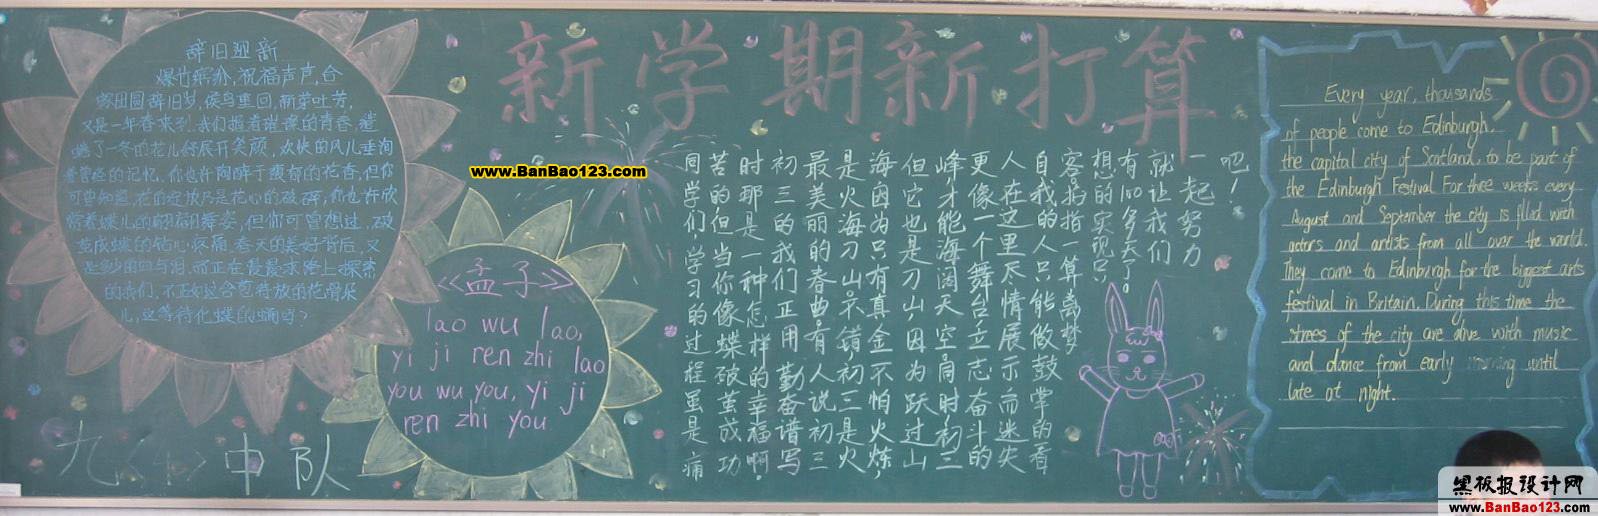 新学期新打算
辞旧迎新
爆竹缤纷,祝福声声,合
家团圆辞旧岁,候鸟重回,新芽吐芳,
又是一年春来到.我们握着璀璨的青春,遮
了一冬的花儿舒展开笑颜,欢快的风儿垂询
着曾经的记忆.你也许陶醉于馥郁的花香,但你
可曾知道,花的绽放乃是花心的破碎,你也许欣
赏着蝶儿的翩翩舞姿,但你可曾想过,破
茧成蝶的钻心疼痛.春天的美好背后,又
是多少血与泪,而正在漫漫求路上探索
的我们,不正如这含苞待放的花骨朵
儿,这等待化蝶的蛹吗?
www.BanBao123.com
《孟子》
lao wu lao,
yi ji ren zhi lao
you wu you, yi ji
ren zhi you
九<4>中队
同学们,学习的过程虽是痛
苦的但当你像蝶破茧成功
时那是一种怎样的幸福啊.
初三的我们正用勤奋谱写
最美丽的春曲,有人说初三
是火海刀山,不错,初三是火
海因为只有真金不怕火炼,
但它也是刀山,因为跃过山
峰,才能海阔天空,同时,初三
更像一个舞台立志奋斗的
人在这里尽情展示而迷失
自我的人只能做鼓掌的看
客掐指一算离梦
想的实现只
有100多天了。
就让我们
一起努力
吧!
Every year, thousands
of people come to Edinburgh,
the capital city of Scotland, to be part of
the Edinburgh Festival For three weeks every
August and September the city is filled with
actors and artists from all over the world.
They come to Edinburgh for the biggest arts
festival in Britain. During this time the
streets of the city are alive with music
and dance from early morning until
late at night.
黑板报设计网
www.BanBao123.com